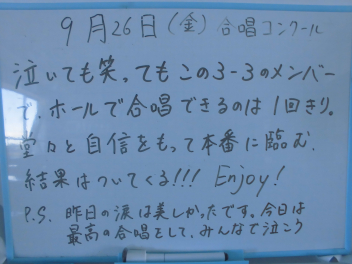 9月26日(金)合唱コンクール
泣いても笑ってもこの3-3のメンバー
で、ホールで合唱できるのは1回きり。
堂々と自信をもって本番に臨む。
結果はついてくる!!! Enjoy!
P.S. 昨日の涙は美しかったです。今日は
最高の合唱をして、みんなで泣こう